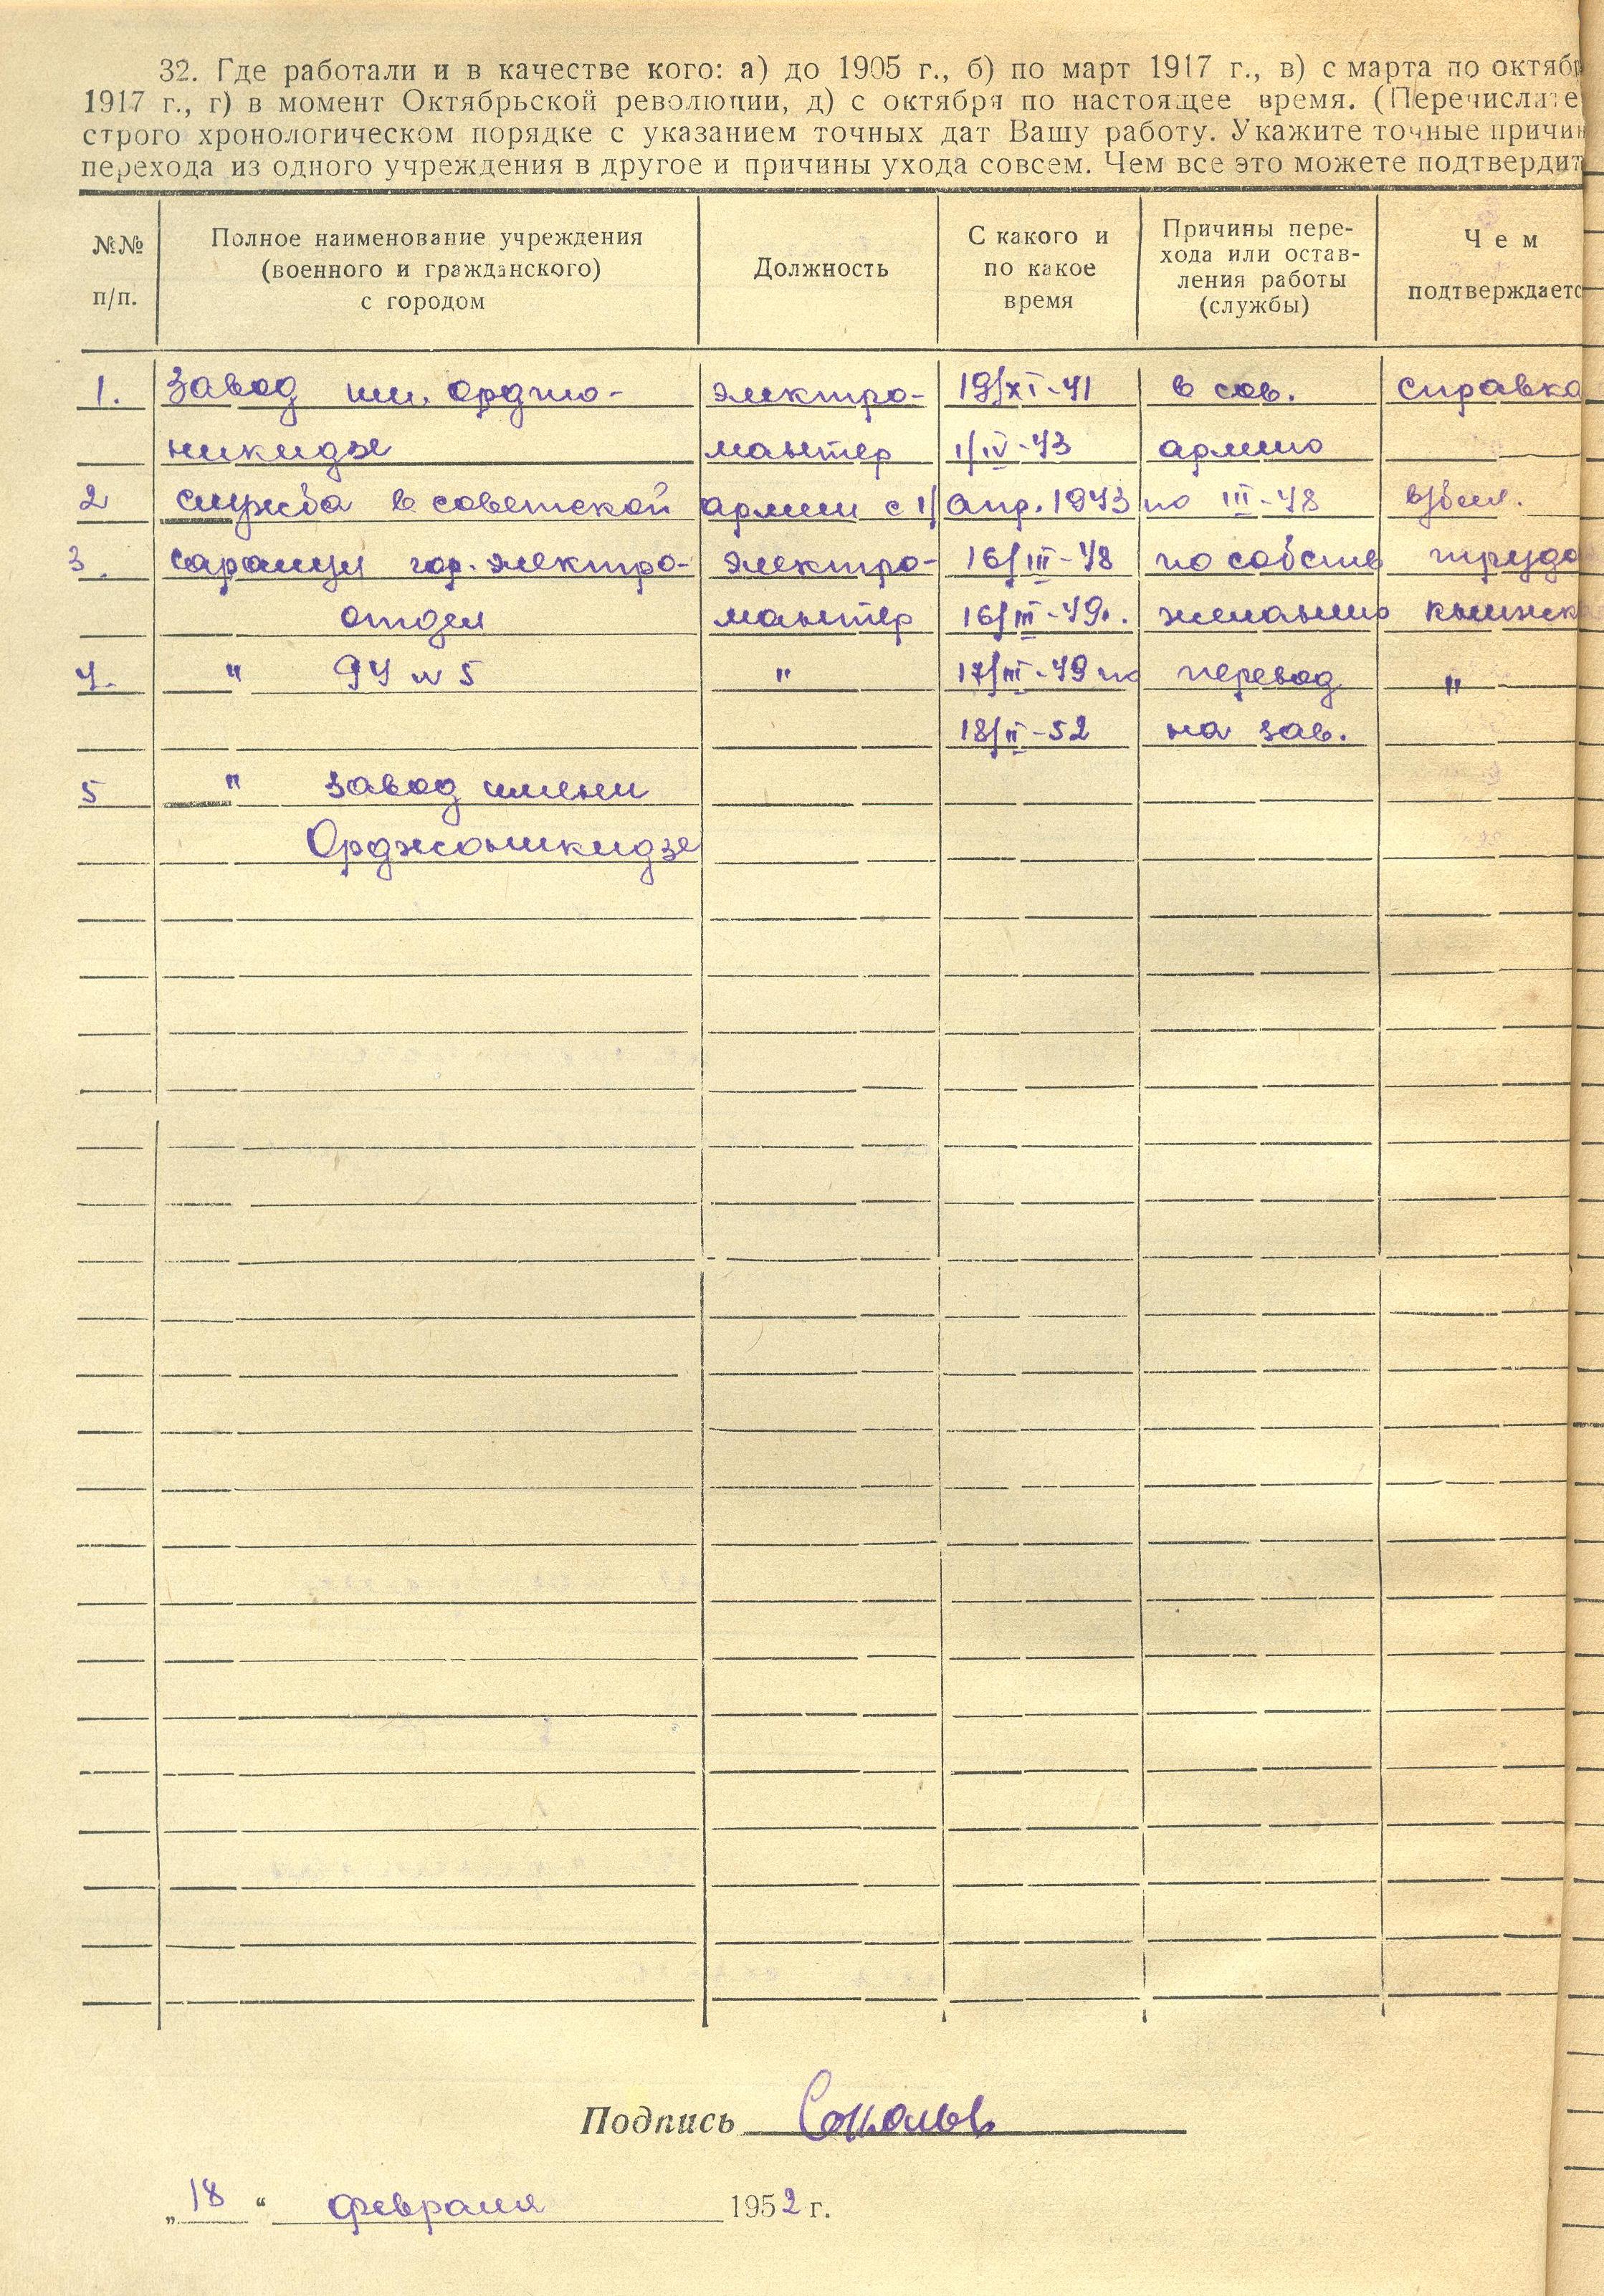 32. Где работали и в качестве кого: а) до 1905 г., б) по март 1917 г., в) с марта по октябр
1917 г., г) в момент Октябрьской революции, д) с октября по настоящее время. (Перечислите
строго хронологическом порядке с указанием точных дат Вашу работу. Укажите точные причин
перехода из одного учреждения в другое и причины ухода совсем. Чем все это можете подтвердит
№№ п/п.
Полное наименование учреждения
(военного и гражданского)
с городом
Должность
С какого и
по какое
время
Причины пере-
хода или остав-
ления работы
(службы)
Чем
подтверждаетс
1. завод им. орджо- электро- 19/XI-41 в сов. справка
никидзе монтер 1/IV-43 армию
2 служба в советской армии с 1/ апр. 1943 по III-48 в/бил.
3. гор. электро- электро- 16/III-48 по собств трудо
отдел монтер 16/III-49г. желанию книжк
4. " " 17/III-49 по перевод "
18/II-52 на зав.
5 " завод имени
Орджоникидзе
Подпись
„18“ февраля 1952 г.